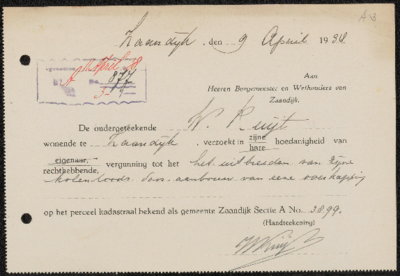 Zaandijk, den 9 April 1934
Aan
Heeren Burgemeester en Wethouders van
Zaandijk.
877
De ondergeteekende W. Kuijt
wonende te Zaandijk, verzoekt in zijne hoedanigheid van
hare
eigenaar,
rechthebbende, vergunning tot het uitbreeden van zijne
kolenloods door aanbouw van eene overkapping
op het perceel kadastraal bekend als gemeente Zaandijk Sectie A No. 2899.
(Handteekening)
W Kuijt